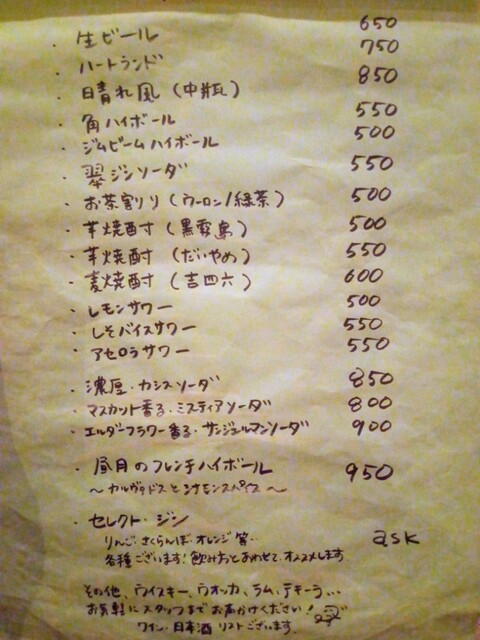 ・生ビール 650
・ハートランド 750
・日晴れ風（中瓶） 850
・角ハイボール 550
・ジムビームハイボール 500
・翠ジンソーダ 550
・お茶割り（ウーロン/緑茶） 500
・芋焼酎（黒霧島） 500
・芋焼酎（だいやめ） 550
・麦焼酎（吉四六） 600
・レモンサワー 500
・しそバイスサワー 550
・アセロラサワー 550
・濃厚・カシスソーダ 850
・マスカット香る・ミスティアソーダ 800
・エルダーフラワー香る・サンジェルマンソーダ 900
・昼月のフレンチハイボール 950
～カルヴァドスとシナモンスパイス～
・セレクト・ジン ask
りんご・さくらんぼ・オレンジ 等…
各種ございます！飲み方とあわせてオススメします
その他、ウイスキー、ウォッカ、ラム、テキーラ…
お気軽にスタッフまでお声かけください！
ワイン・日本酒 リストございます.